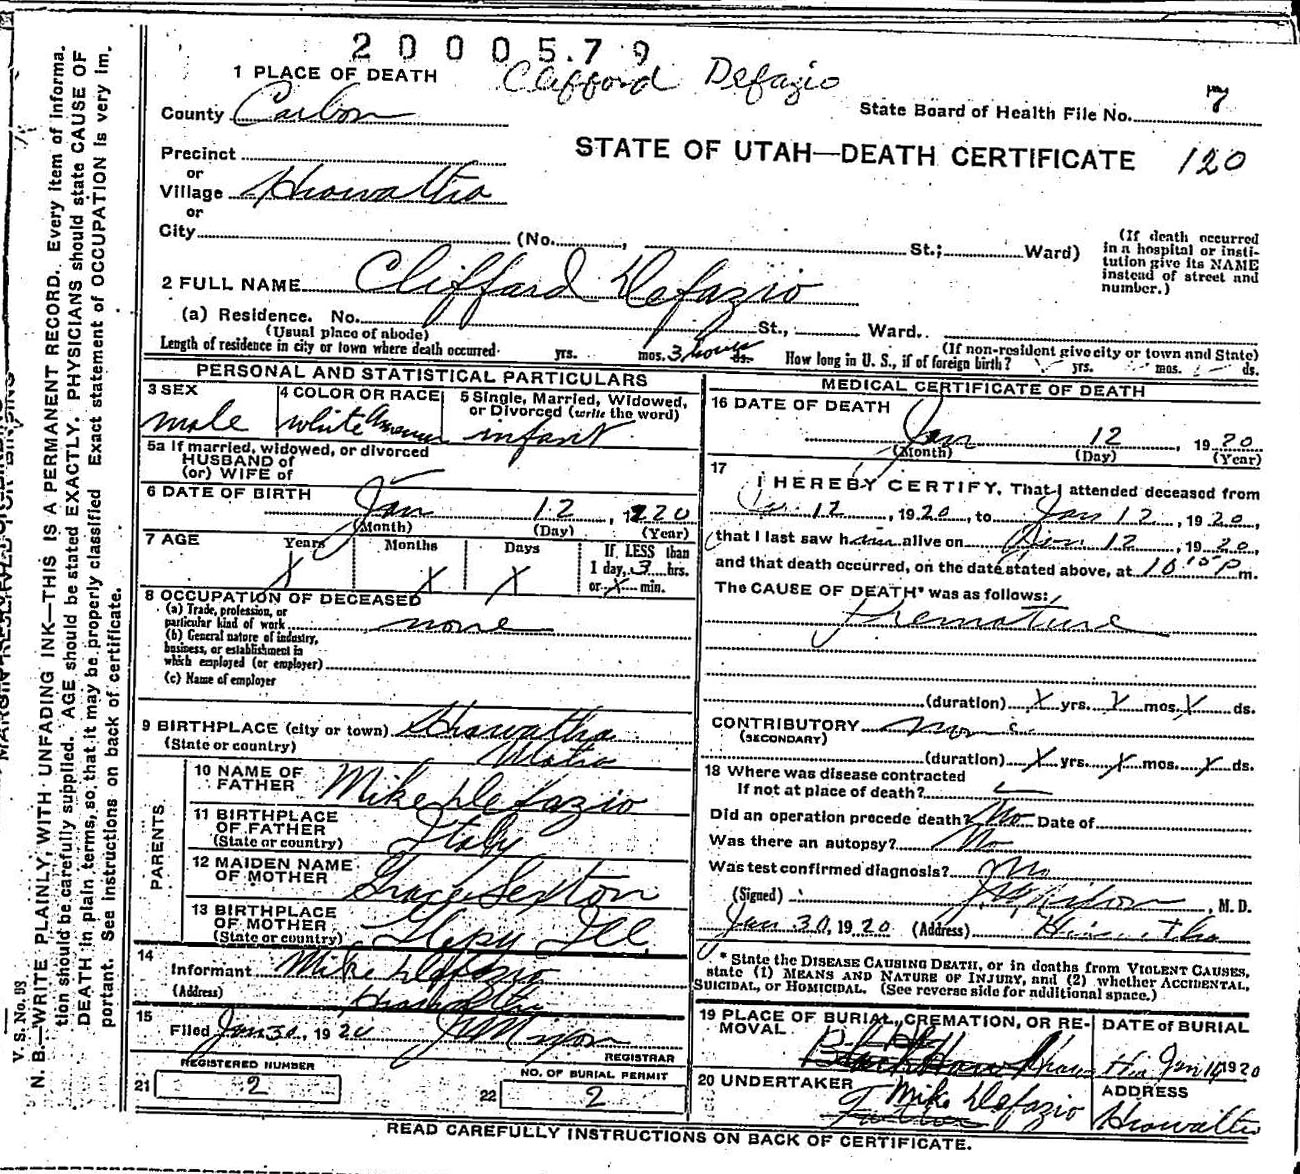 2000579
Clifford Defazio
1 PLACE OF DEATH
State Board of Health File No. 7
County Carbon
STATE OF UTAH—DEATH CERTIFICATE 120
Precinct
or
Village Hiawatha
or
City (No. , St.; Ward)
(If death occurred in a hospital or insti-
tution give its NAME
instead of street and
number.)
2 FULL NAME Clifford Defazio
(a) Residence. No. St., Ward.
(Usual place of abode) (If non-resident give city or town and State)
Length of residence in city or town where death occurred yrs. mos. 3 hours ds. How long in U. S., if of foreign birth? yrs. mos. ds.
PERSONAL AND STATISTICAL PARTICULARS
3 SEX
male
4 COLOR OR RACE
white
5 Single, Married, Widowed,
or Divorced (write the word)
infant
5a If married, widowed, or divorced
HUSBAND of
(or) WIFE of
6 DATE OF BIRTH
Jan 12, 1920
(Month) (Day) (Year)
7 AGE Years Months Days If LESS than
X X X 1 day, 3 hrs.
or X min.
8 OCCUPATION OF DECEASED
(a) Trade, profession, or
particular kind of work none
(b) General nature of industry,
business, or establishment in
which employed (or employer)
(c) Name of employer
9 BIRTHPLACE (city or town) Hiawatha
(State or country)
PARENTS
10 NAME OF
FATHER Mike Defazio
11 BIRTHPLACE
OF FATHER
(State or country) Italy
12 MAIDEN NAME
OF MOTHER Grace Sexton
13 BIRTHPLACE
OF MOTHER
(State or country) Ill
14
Informant Mike Defazio
(Address) Hiawatha
15
Filed Jan 30, 1920 J M Nixon
REGISTRAR
REGISTERED NUMBER
21 2
NO. OF BURIAL PERMIT
22 2
MEDICAL CERTIFICATE OF DEATH
16 DATE OF DEATH
Jan 12, 1920
(Month) (Day) (Year)
17
I HEREBY CERTIFY, That I attended deceased from
Jan 12, 1920, to Jan 12, 1920,
that I last saw him alive on Jan 12, 1920,
and that death occurred, on the date stated above, at 10 15 P m.
The CAUSE OF DEATH* was as follows:
Premature
(duration) X yrs. X mos. X ds.
CONTRIBUTORY none
(SECONDARY)
(duration) X yrs. X mos. X ds.
18 Where was disease contracted
If not at place of death?
Did an operation precede death? No Date of
Was there an autopsy? No
Was test confirmed diagnosis? No
(Signed) J M Nixon, M. D.
Jan 30, 1920 (Address) Hiawatha
* State the DISEASE CAUSING DEATH, or in deaths from VIOLENT CAUSES,
state (1) MEANS AND NATURE OF INJURY, and (2) whether ACCIDENTAL,
SUICIDAL, or HOMICIDAL. (See reverse side for additional space.)
19 PLACE OF BURIAL, CREMATION, OR RE-
MOVAL
DATE OF BURIAL
Jan 14 1920
20 UNDERTAKER
Mike Defazio
ADDRESS
Hiawatha
READ CAREFULLY INSTRUCTIONS ON BACK OF CERTIFICATE.
V. S. No. 98
N. B.—WRITE PLAINLY, WITH UNFADING INK—THIS IS A PERMANENT RECORD. Every item of informa-
tion should be carefully supplied. AGE should be stated EXACTLY. PHYSICIANS should state CAUSE OF
DEATH in plain terms, so that it may be properly classified Exact statement of OCCUPATION is very im-
portant. See instructions on back of certificate.